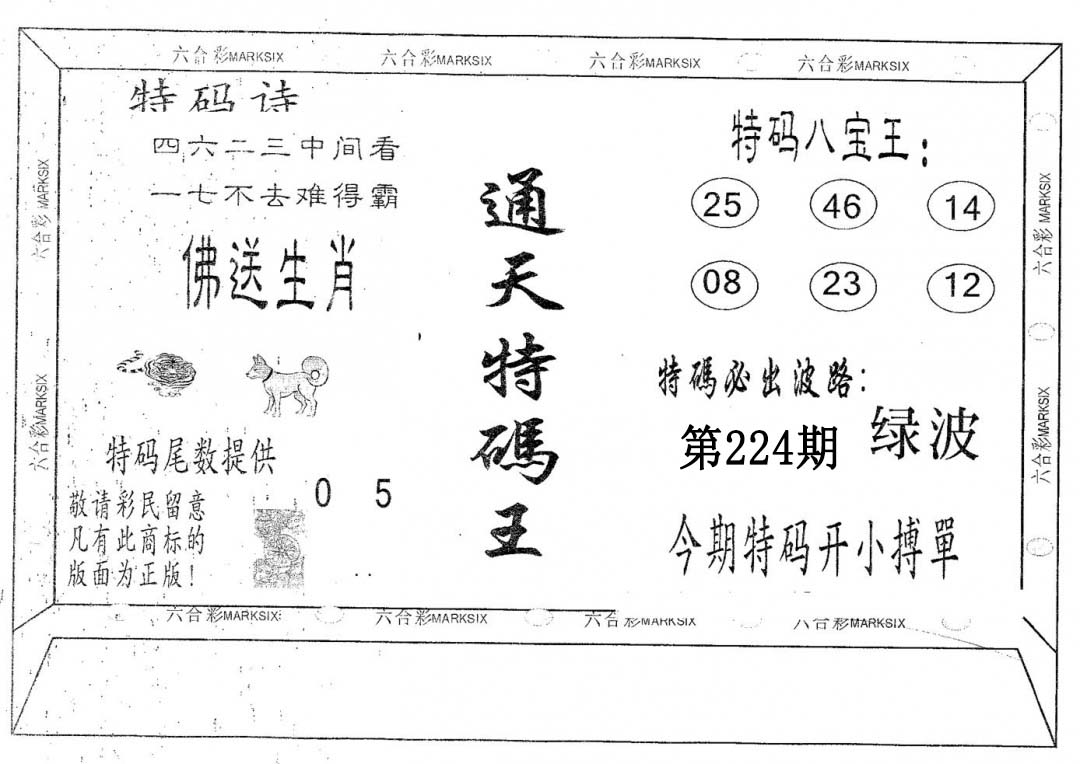 六合彩MARKSIX 六合彩MARKSIX 六合彩MARKSIX 六合彩MARKSIX
六合彩MARKSIX
六合彩MARKSIX
特码诗
四六二三中间看
一七不去难得霸
佛送生肖
特码尾数提供
0 5
敬请彩民留意
凡有此商标的
版面为正版!
通天特碼王
特码八宝王:
25 46 14
08 23 12
特碼必出波路:
第224期 绿波
今期特码开小搏單
六合彩MARKSIX
六合彩MARKSIX
六合彩MARKSIX 六合彩MARKSIX 六合彩MARKSIX 六合彩MARKSIX